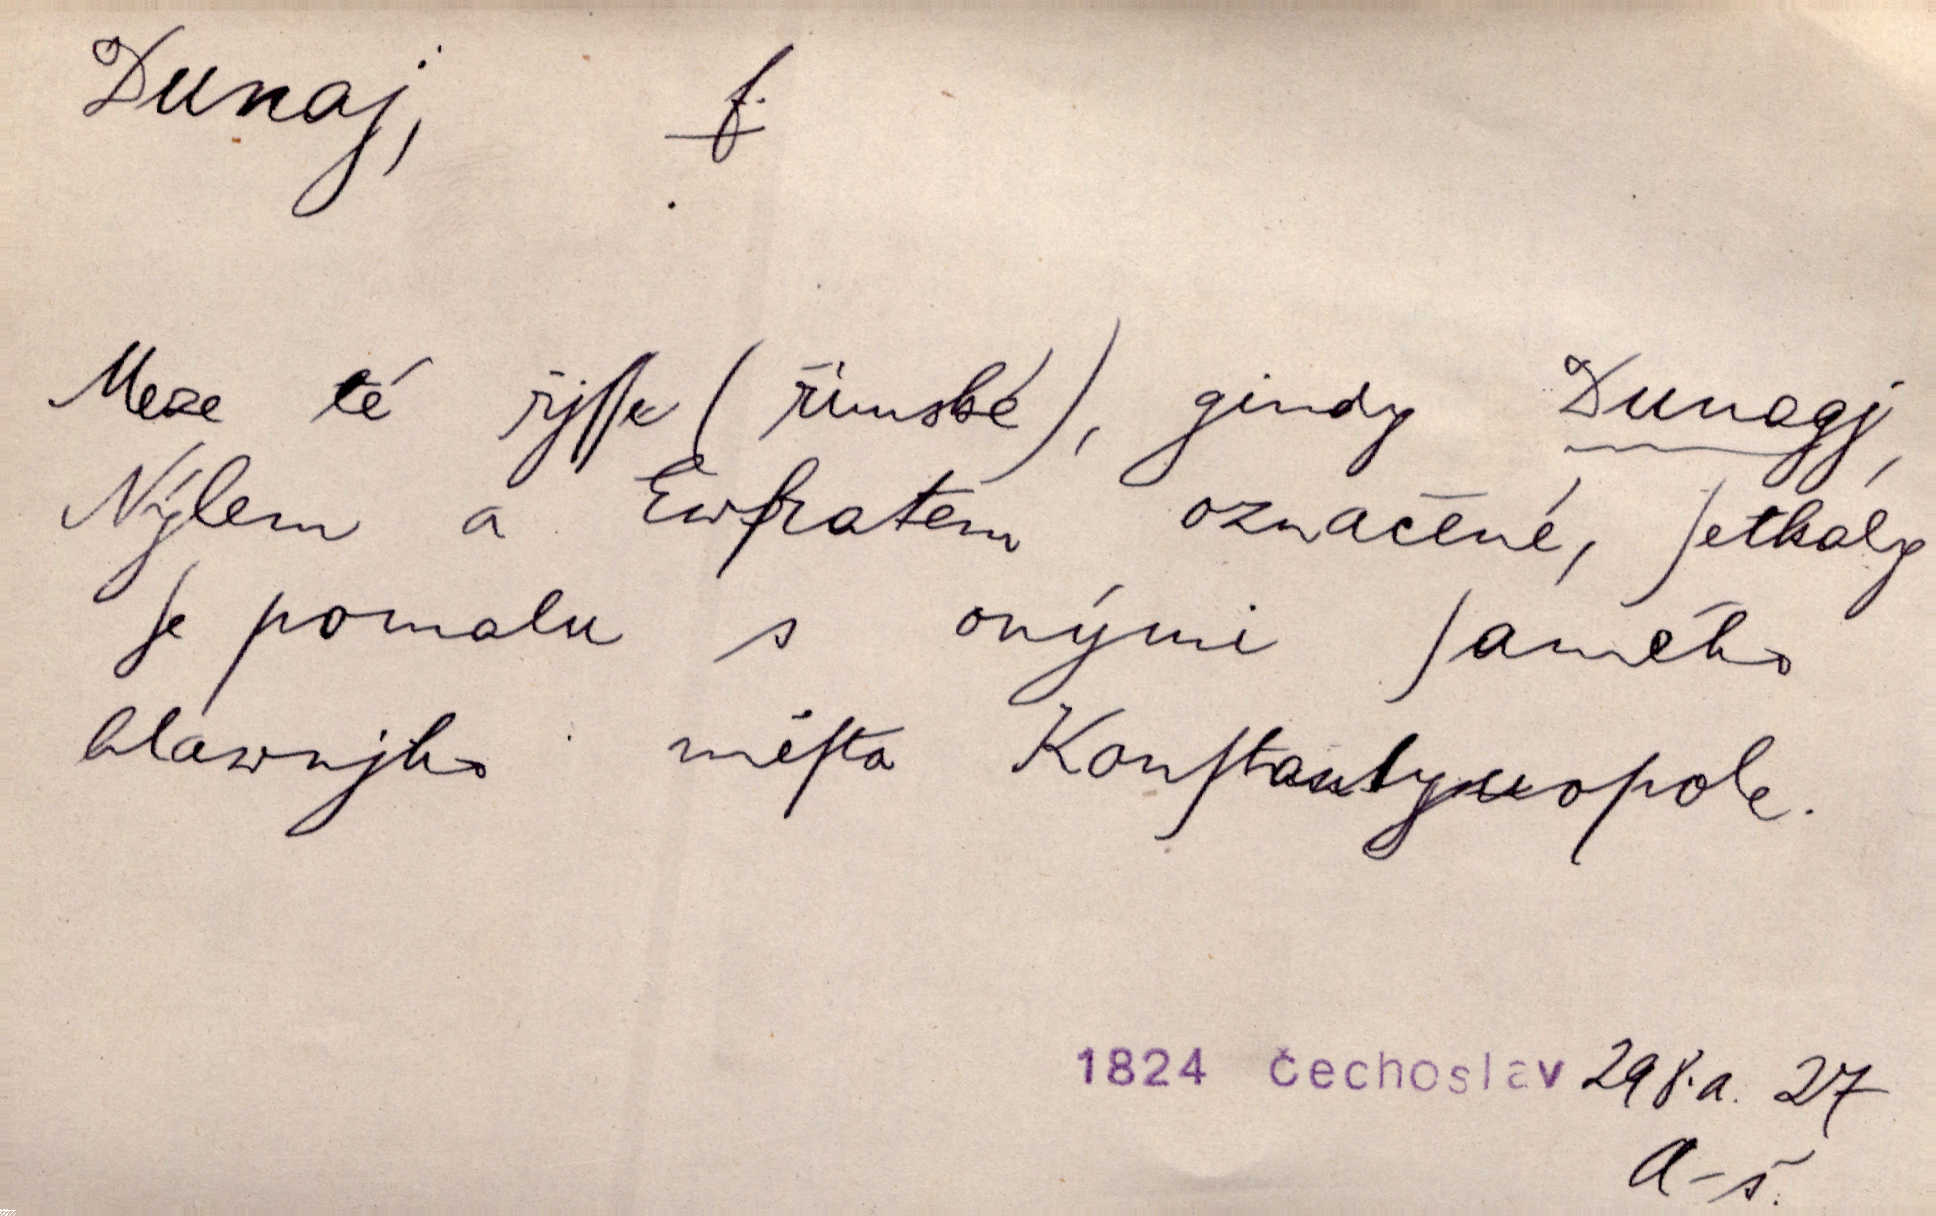 Dunaj, f.
Meze té řjſſe (římské), gindy Dunagj,
Nýlem a Ewfratem označené, ſetkaly
ſe pomalu s onými ſamého
hlawnjho měſta Konſtantynopole.
1824 Čechoslav 298.a. 27
a-š.